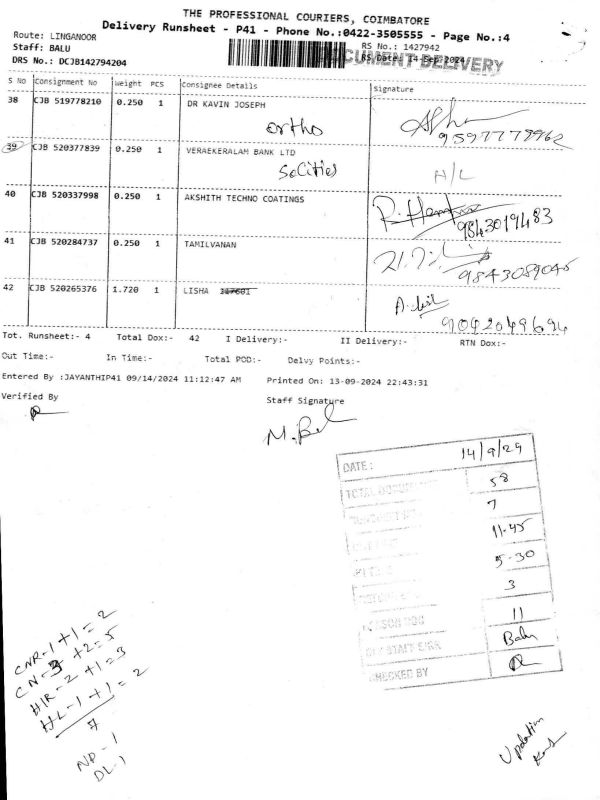 THE PROFESSIONAL COURIERS, COIMBATORE
Delivery Runsheet - P41 - Phone No.:0422-3505555 - Page No.:4
Route: LINGANOOR
RS No.: 1427942
Staff: BALU
RS Date: 14-Sep-2024
DOCUMENT DELIVERY
DRS No.: DCJB142794204
S No Consignment No Weight PCS Consignee Details Signature
38 CJB 519778210 0.250 1 DR KAVIN JOSEPH
ortho
9597779962
39 CJB 520377839 0.250 1 VERAEKERALAM BANK LTD
SoCities
H/L
40 CJB 520337998 0.250 1 AKSHITH TECHNO COATINGS
9843019483
41 CJB 520284737 0.250 1 TAMILVANAN
9843089045
42 CJB 520265376 1.720 1 LISHA 317601
9042049694
Tot. Runsheet:- 4 Total Dox:- 42 I Delivery:- II Delivery:- RTN Dox:-
Out Time:- In Time:- Total POD:- Delvy Points:-
Entered By :JAYANTHIP41 09/14/2024 11:12:47 AM Printed On: 13-09-2024 22:43:31
Verified By Staff Signature
DATE : 14/9/24
58
7
11-45
5-30
3
11
Balu
CHECKED BY
CNR-1+1=2
CN-3+2=5
HIR-2+1=3
HL-1+1=2
7
ND-1
DL-1
Updation